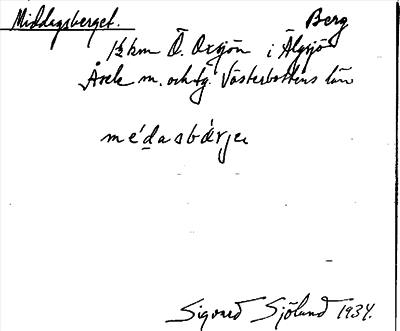 Middagsberget. Berg
1/2 km Ö. Oxsjön i Älgsjö
Åsele m. och tg. Västerbottens län
médasbärjẹ
Sigvard Sjölund 1934.